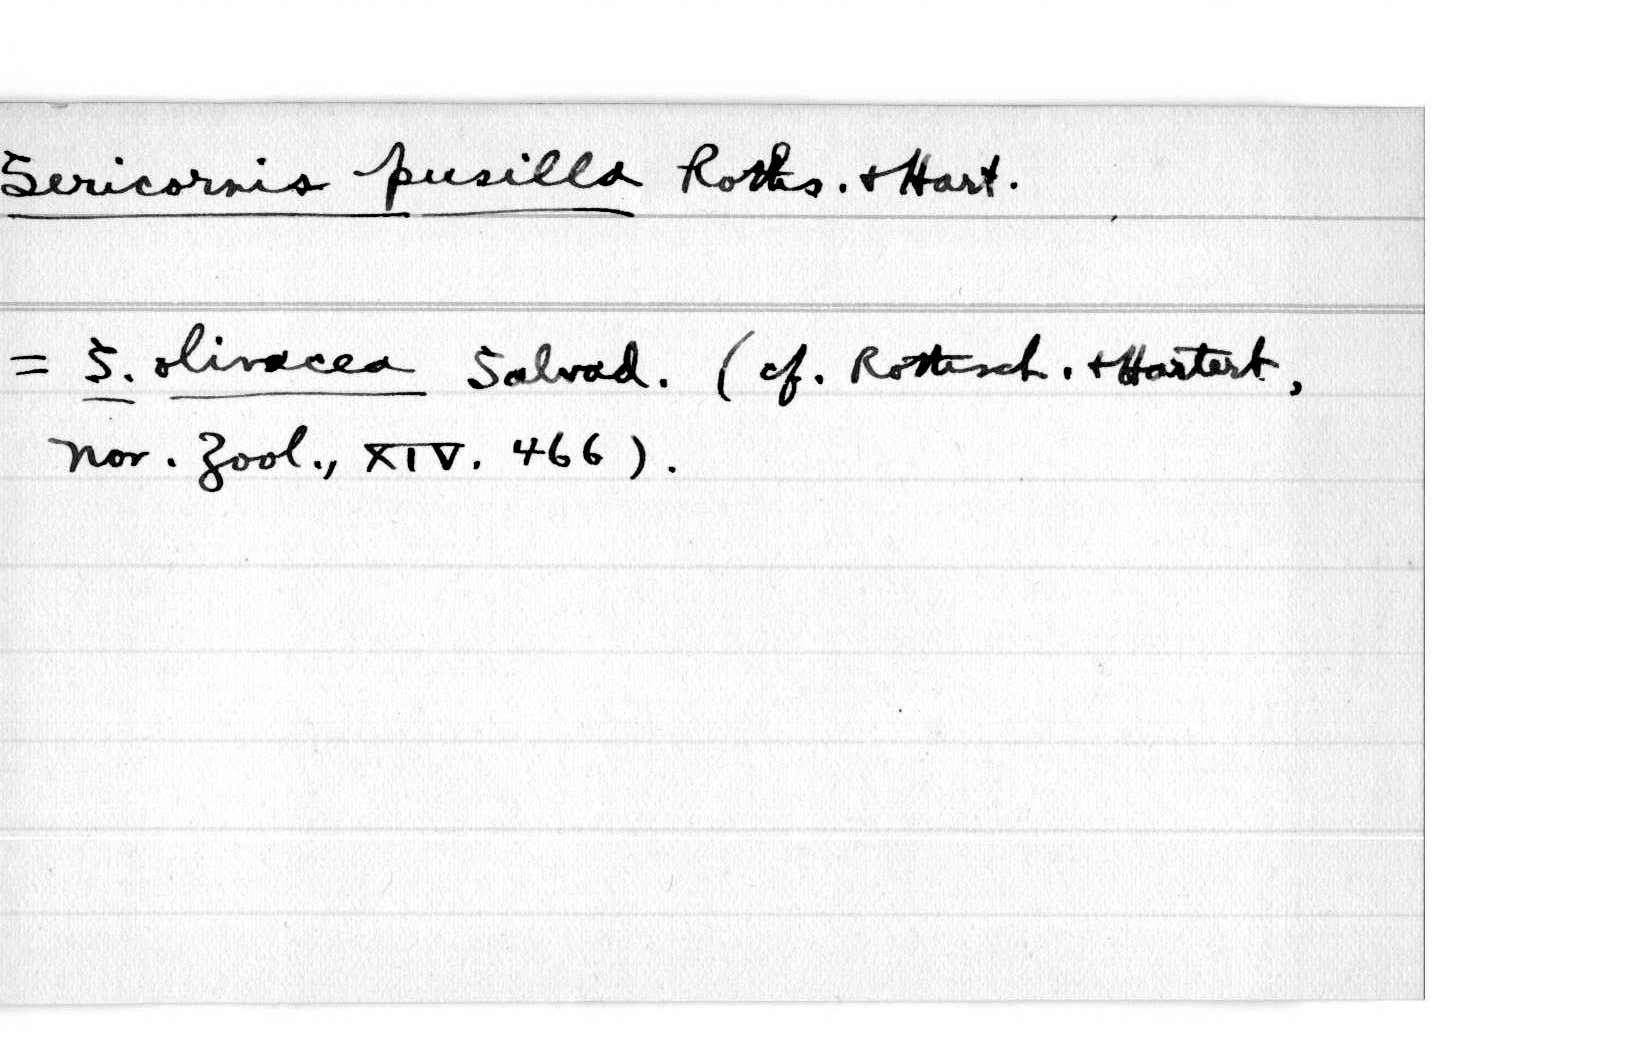 Sericornis pusilla Roths. & Hart.
= S. olivacea Salvad. (cf. Rothsch. & Hartert,
Nov. Zool., XIV. 466).